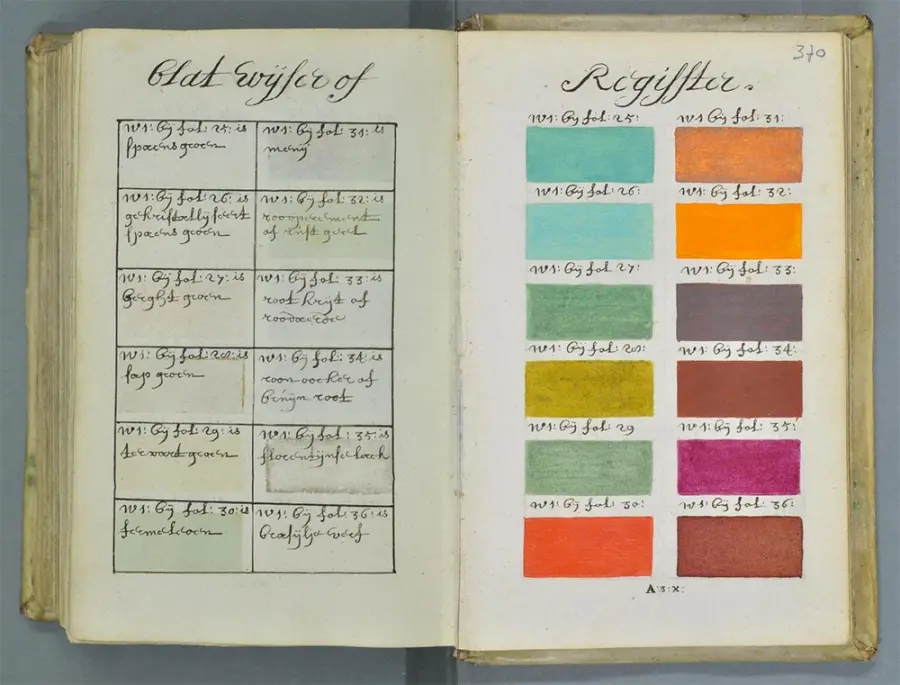 blat wijser of
n1: bij fol: 25: is
spaens groen
n1: bij fol: 31: is
menij
n1: bij fol: 26: is
gekristallijseert
spaens groen
n1: bij fol: 32: is
roooperement
of rust geel
n1: bij fol: 27: is
berght groen
n1: bij fol: 33: is
root krijt of
roodaerde
n1: bij fol: 28: is
sap groen
n1: bij fol: 34: is
roon oocker of
bruijn root
n1: bij fol: 29: is
groen
n1: bij fol: 35: is
florentijnse lack
n1: bij fol: 30: is
n1: bij fol: 36: is
brasijlje verf
370
Regisster.
n1: bij fol: 25:
n1 bij fol: 31:
n1: bij fol: 26:
n1: bij fol: 32:
n1: bij fol: 27:
n1: bij fol: 33:
n1: bij fol: 28:
n1: bij fol: 34:
n1: bij fol: 29
n1: bij fol: 35:
n1: bij fol: 30:
n1: bij fol: 36:
A:3:X: